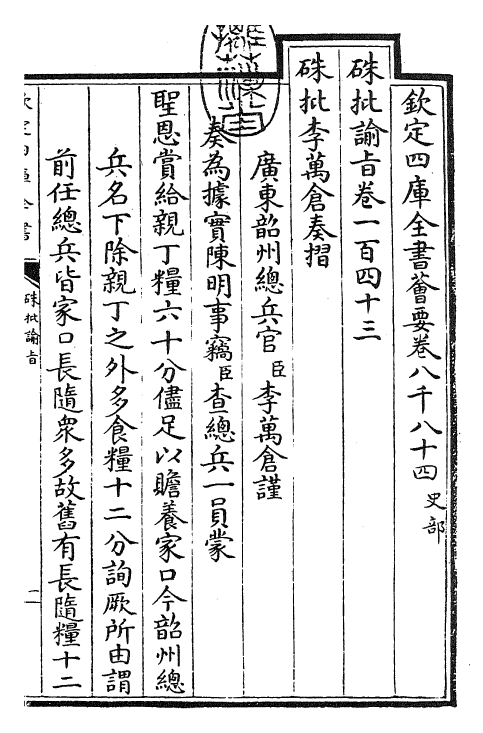 欽定四庫全書薈要卷八千八十四 史部
硃批諭旨卷一百四十三
硃批李萬倉奏摺
廣東韶州總兵官臣李萬倉謹
奏為據實陳明事竊臣查總兵一員蒙
聖恩賞給親丁糧六十分儘足以贍養家口今韶州總
兵名下除親丁之外多食糧十二分詢厥所由謂
前任總兵皆家口長隨衆多故舊有長隨糧十二
硃批諭旨
一